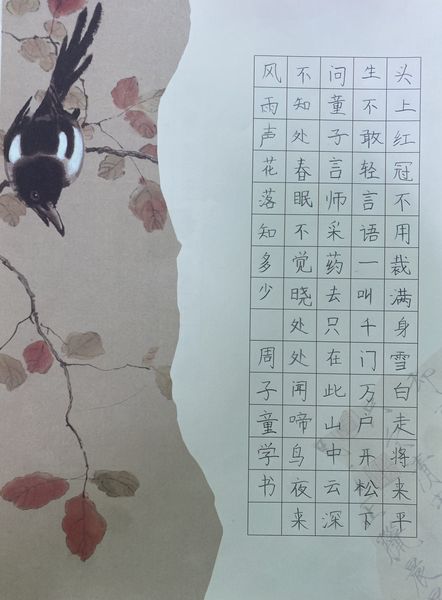 头上红冠不用裁满身雪白走将来平
生不敢轻言语一叫千门万户开松下
问童子言师采药去只在此山中云深
不知处春眠不觉晓处处闻啼鸟夜来
风雨声花落知多少 周子童学书